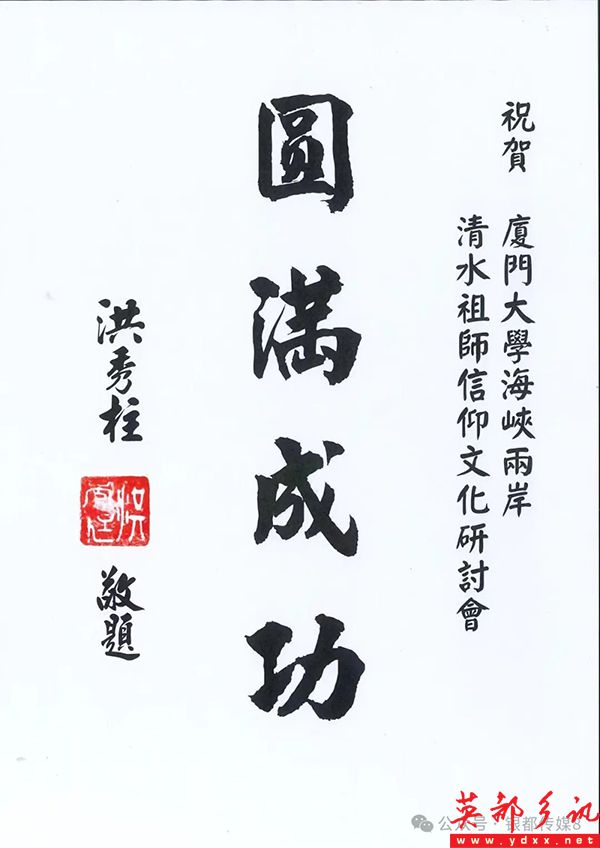 祝賀 廈門大學海峽兩岸
清水祖師信仰文化研討會
圓滿成功
洪秀柱
敬題
英都乡讯
公众号·银都传媒8
www.ydxx.net